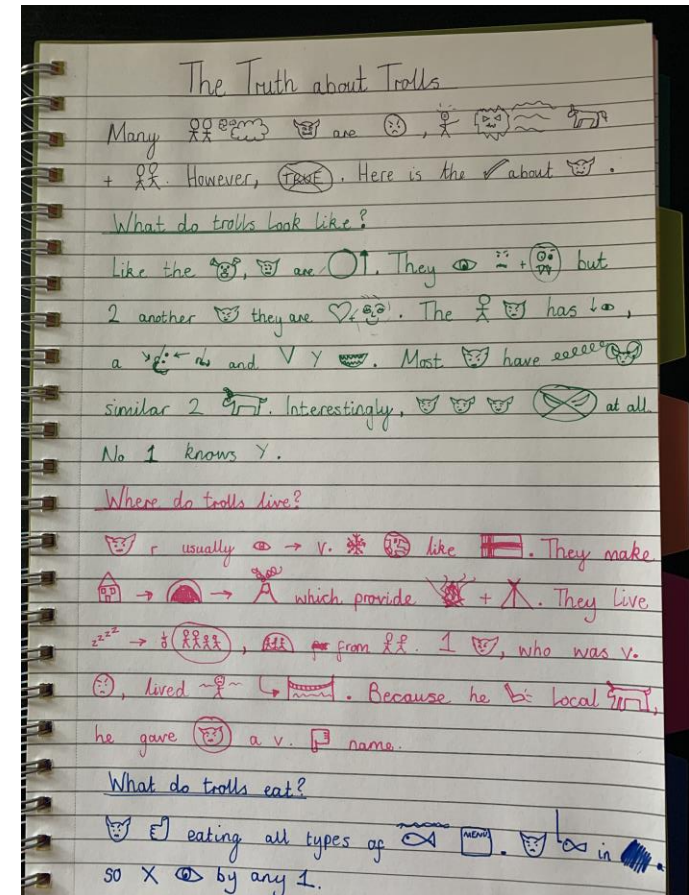 The Truth about Trolls
Many are ,
+ . However, TRUE . Here is the about .
What do trolls look like?
Like the , are . They + but
2 another they are . The has ,
a and V Y . Most have eeeeee
similar 2 . Interestingly, at all.
No 1 knows Y.
Where do trolls live?
r usually → v. like . They make
→ → which provide + . They live
zzzz → , from . 1 , who was v.
, lived . Because he local ,
he gave a v. name.
What do trolls eat?
eating all types of MENU . in .
so X by any 1.